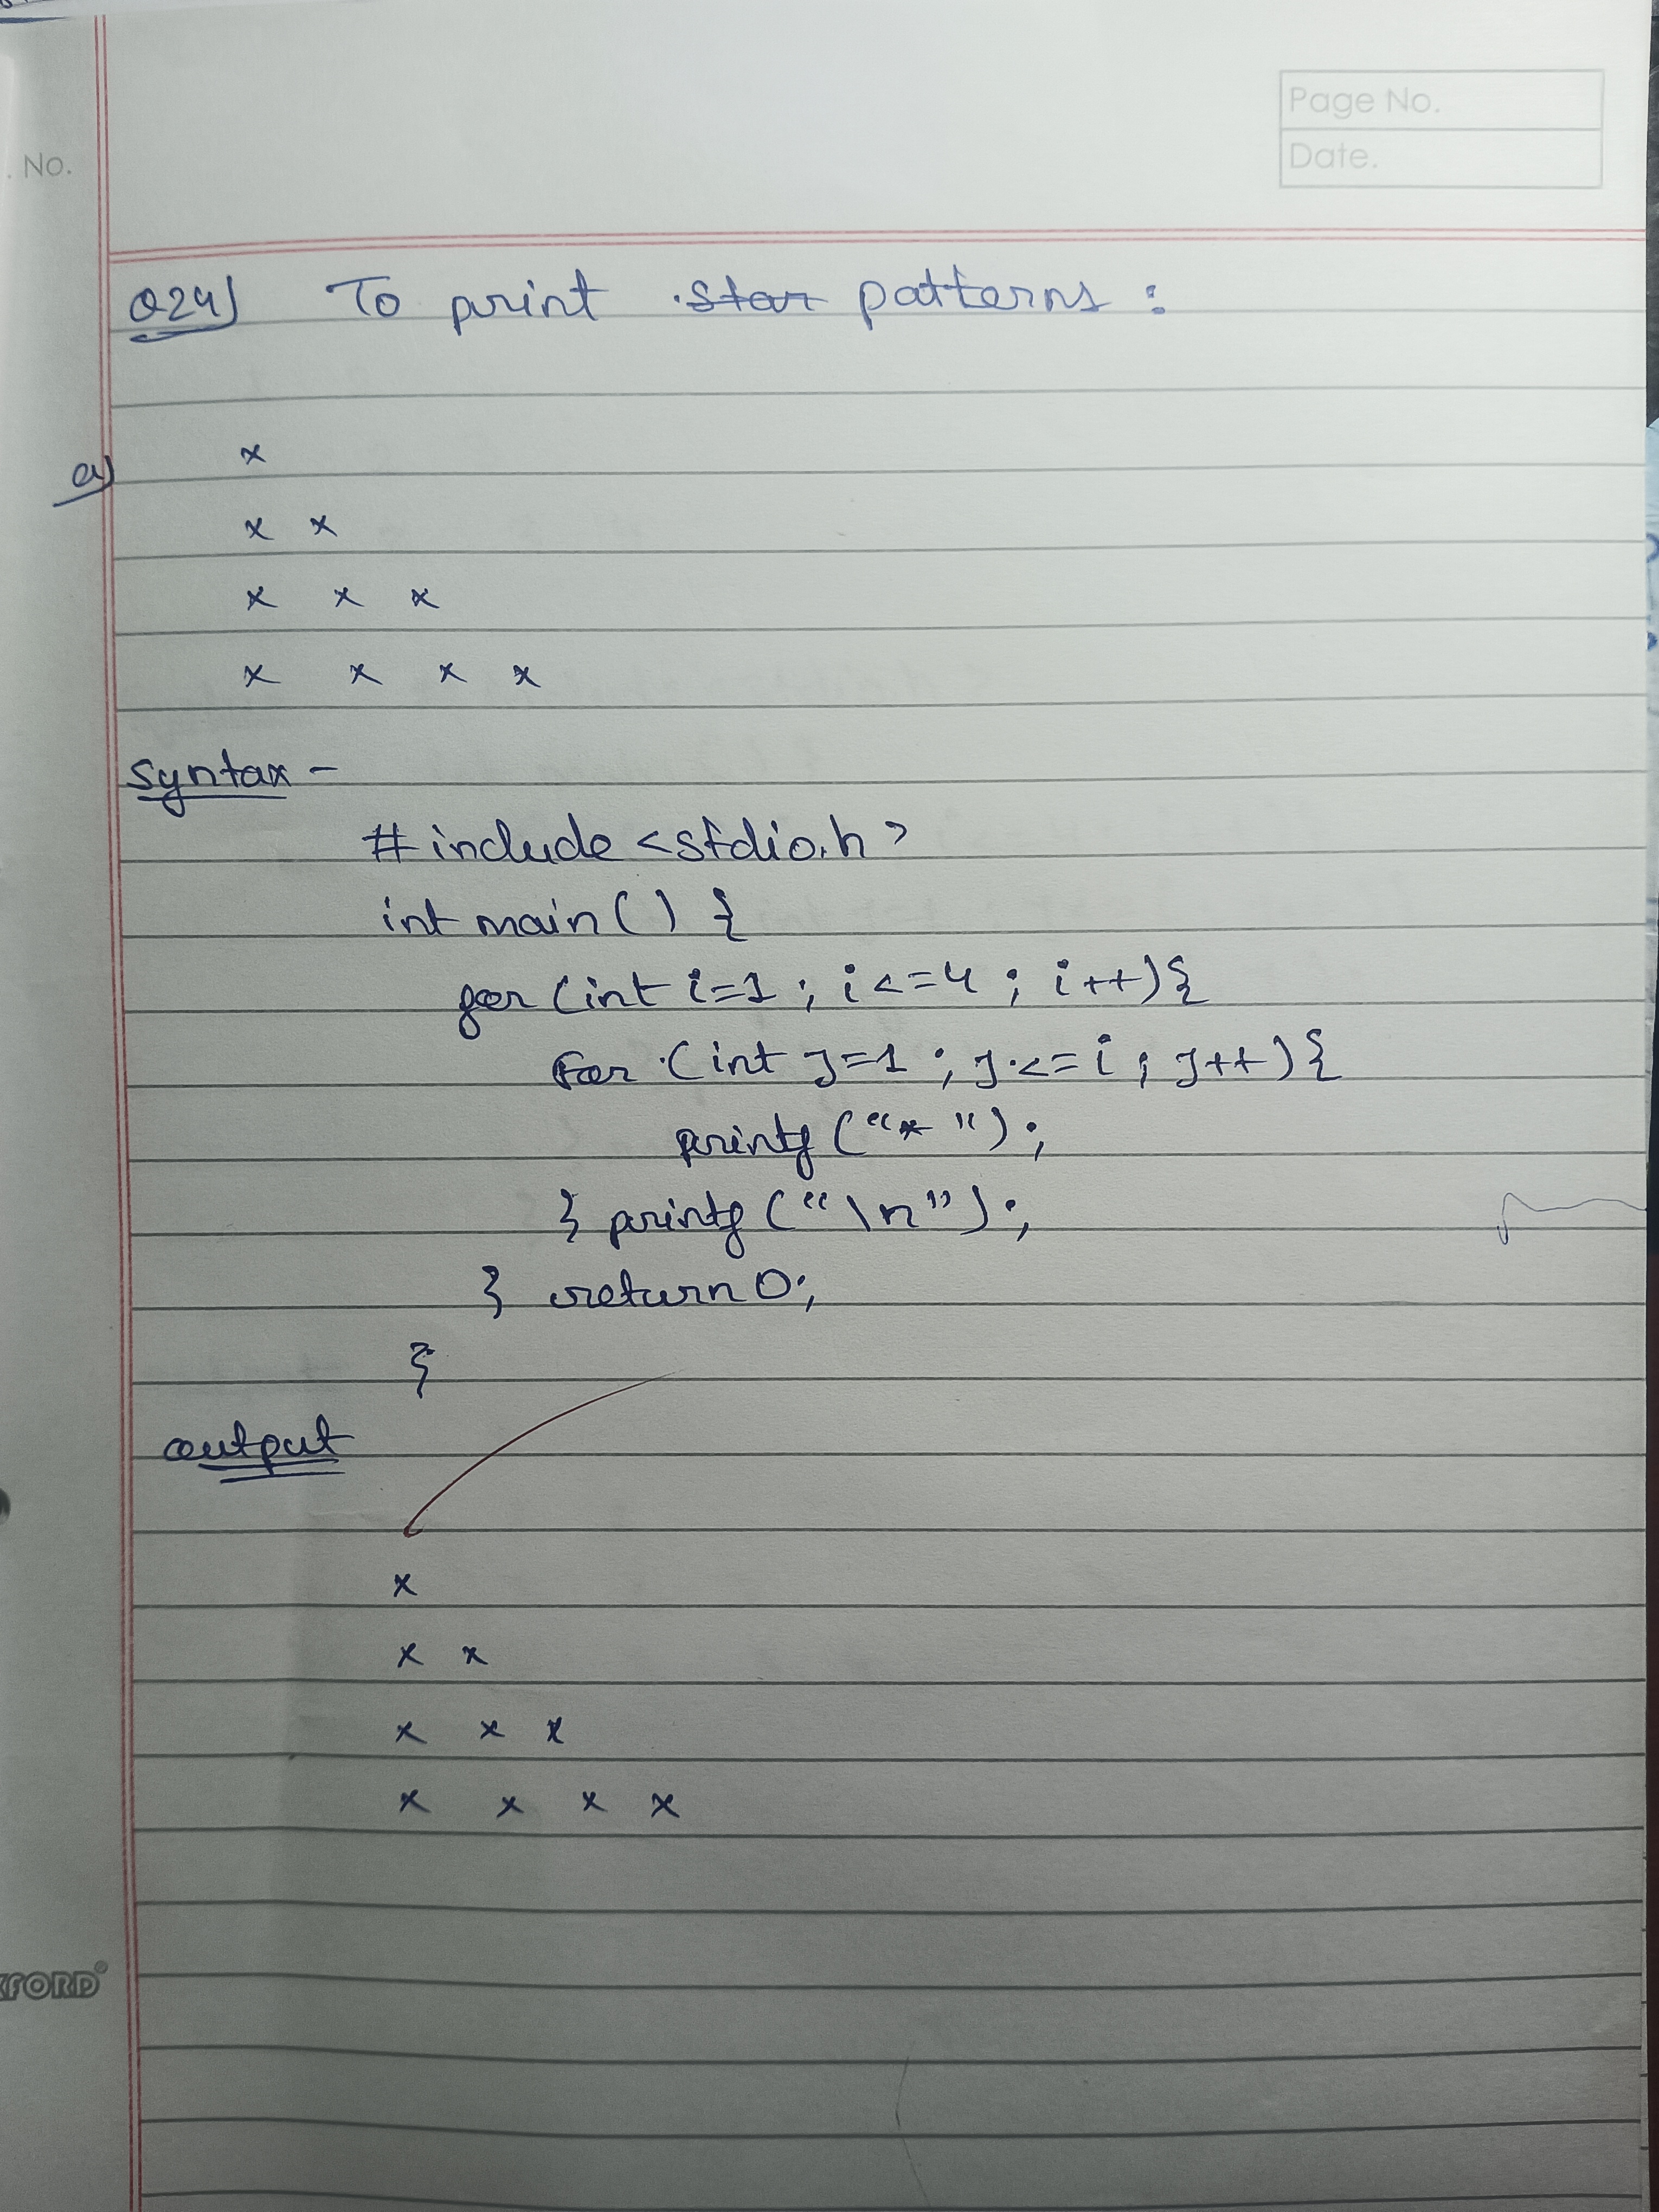 Page No.
Date.
. No.
Q24) To print star patterns :
a)
x
x x
x x x
x x x x
syntax -
# include <stdio.h>
int main() {
for (int i=1 ; i<=4 ; i++){
for (int j=1 ; j<=i ; j++){
printf ("* ");
} printf ("\n");
} return 0;
}
output
x
x x
x x x
x x x x
XFORD